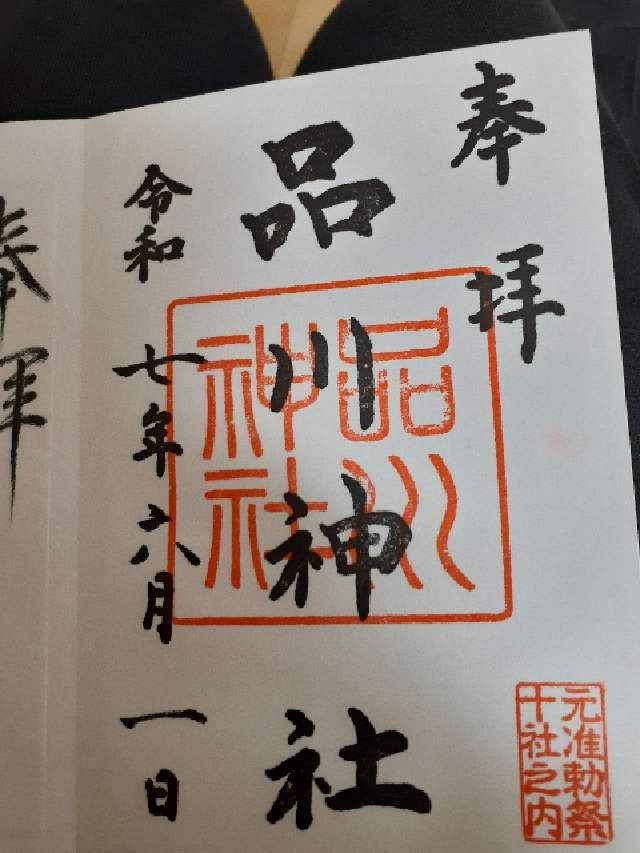 奉拝
品川神社
品川
神社
令和七年六月一日
元准勅祭
十社之内
奉拝